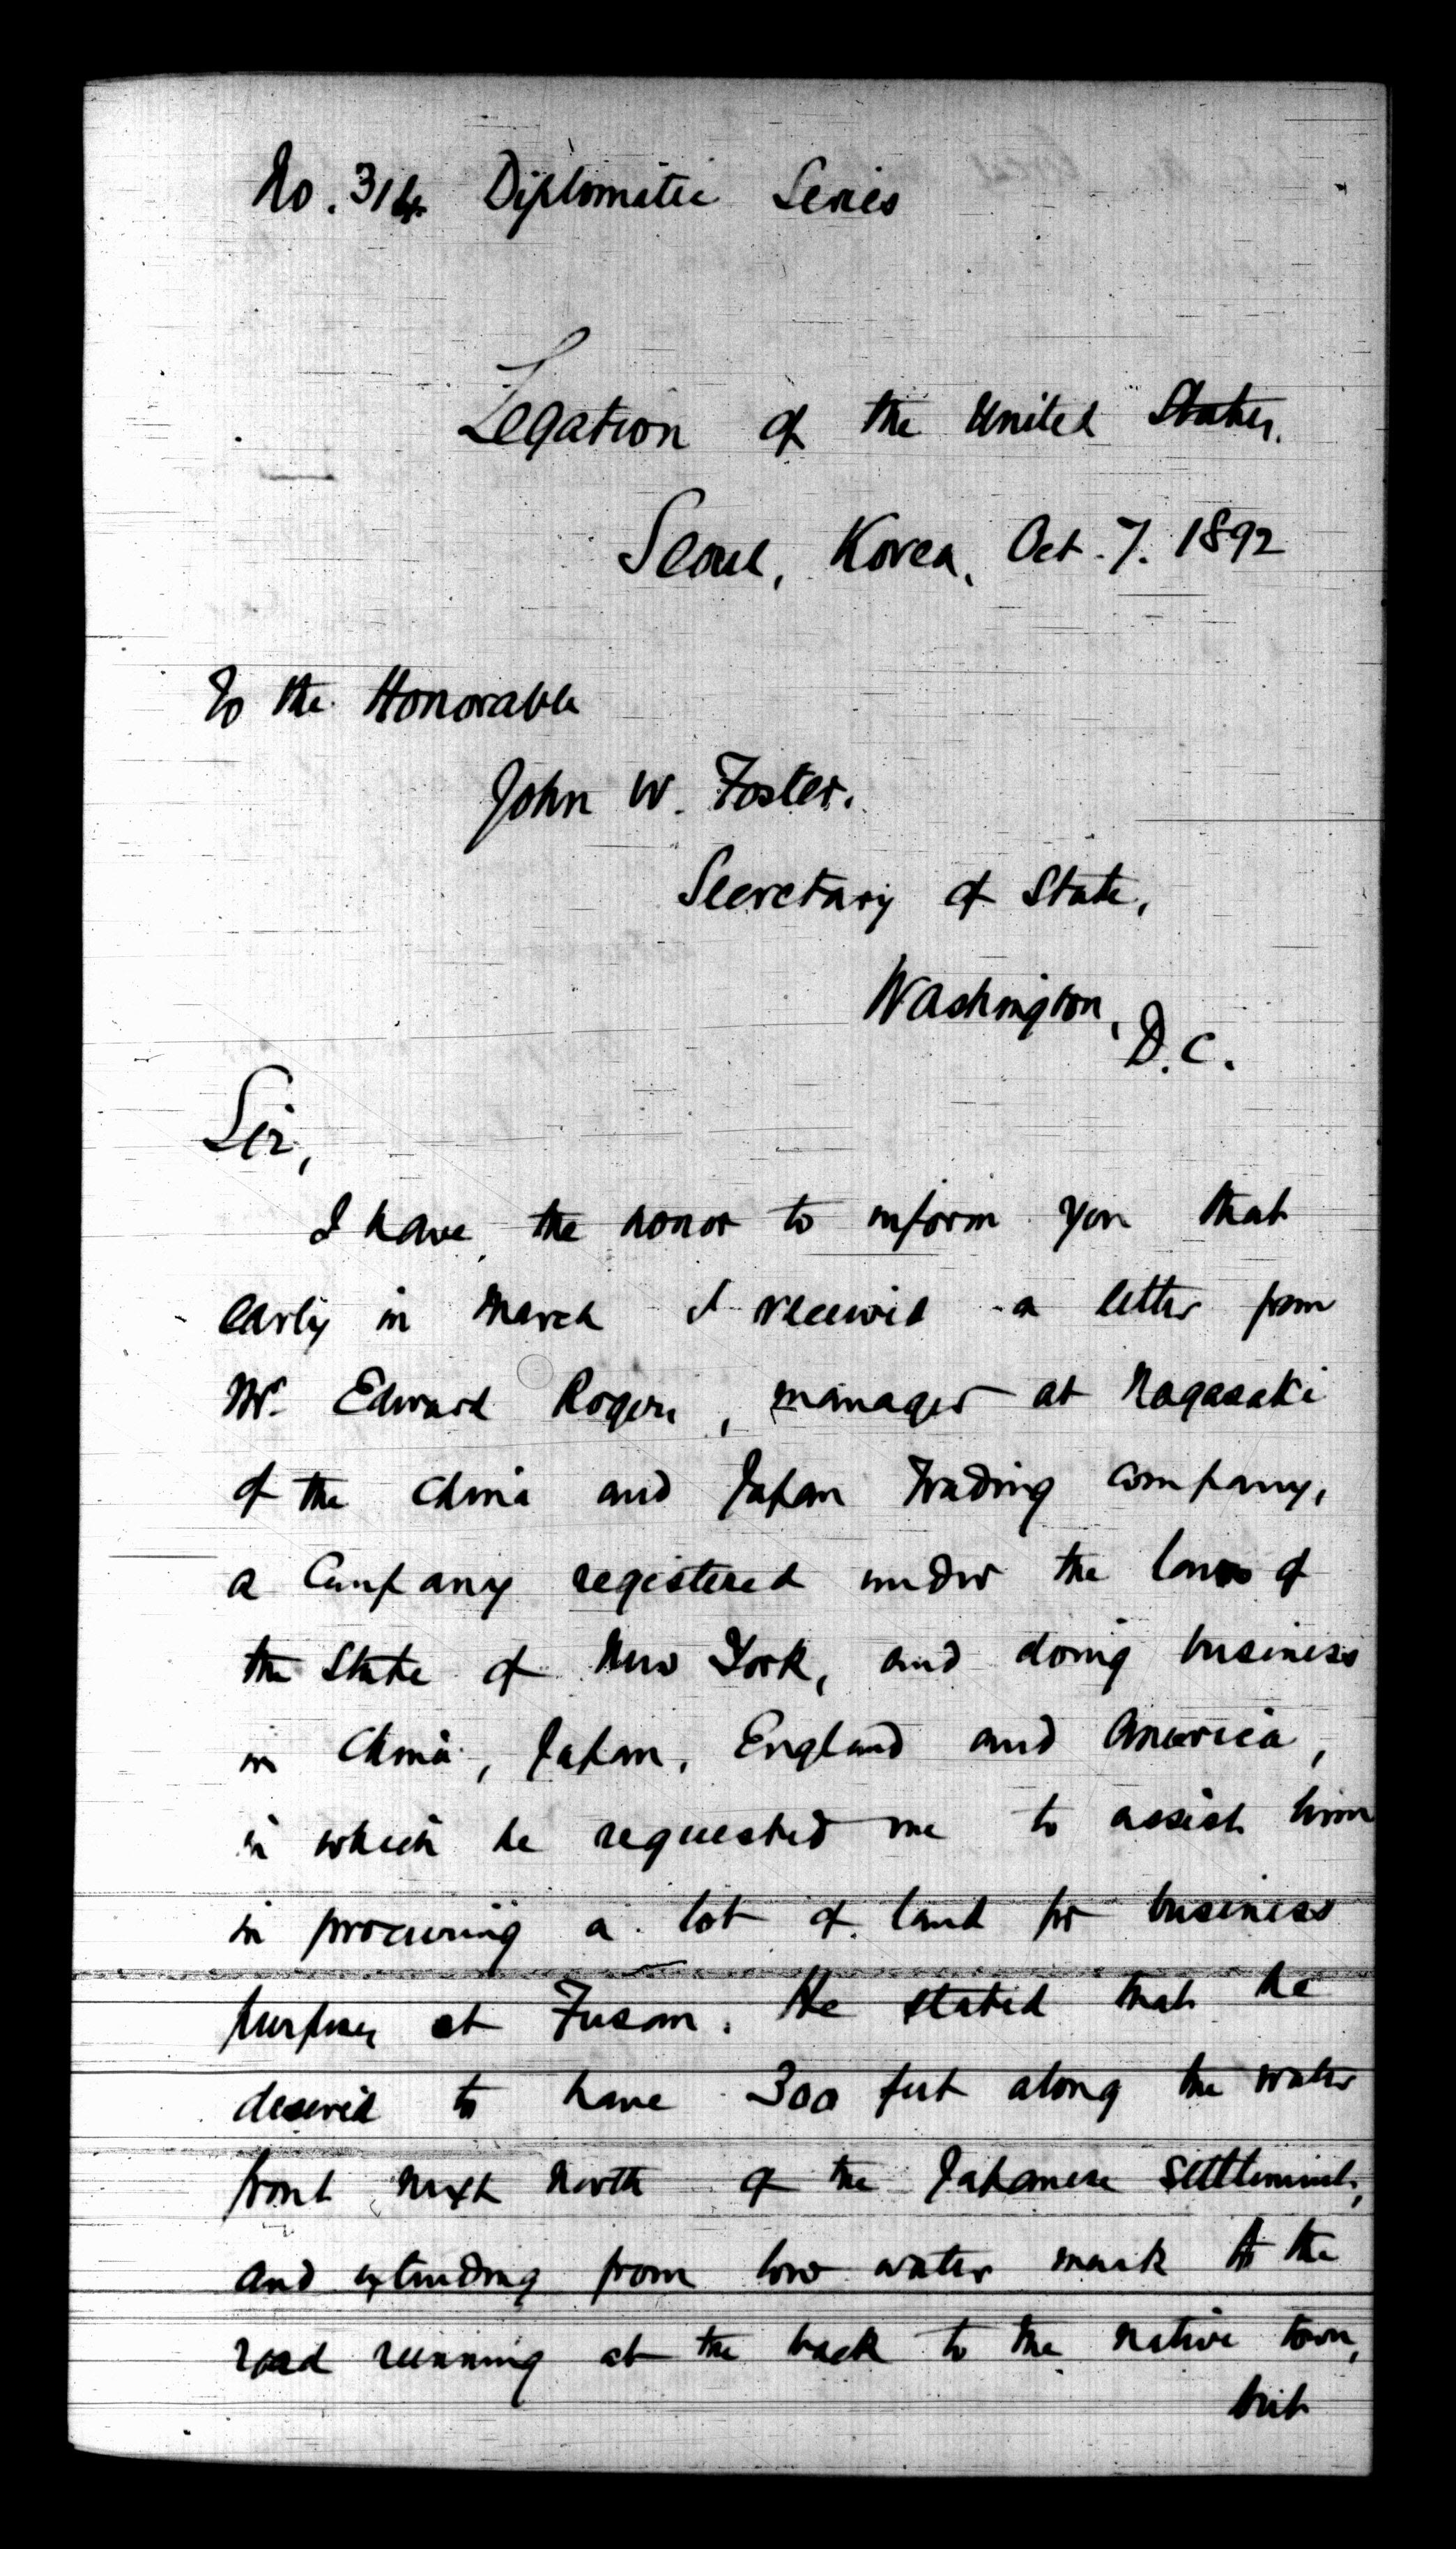 No. 314 Diplomatic Series
Legation of the United States,
Seoul, Korea, Oct. 7. 1892
To the Honorable
John W. Foster.
Secretary of State,
Washington,
D.C.
Sir,
I have the honor to inform you that
early in March I received a letter from
Mr. Edward Rogers, manager at Nagasaki
of the China and Japan Trading Company,
a Company registered under the laws of
the State of New York, and doing business
in China, Japan, England and America,
in which he requested me to assist him
in procuring a lot of land for business
purposes at Fusan. He stated that he
desired to have 300 feet along the water
front next North of the Japanese Settlement,
and extending from low water mark to the
road running at the back to the native town,
but